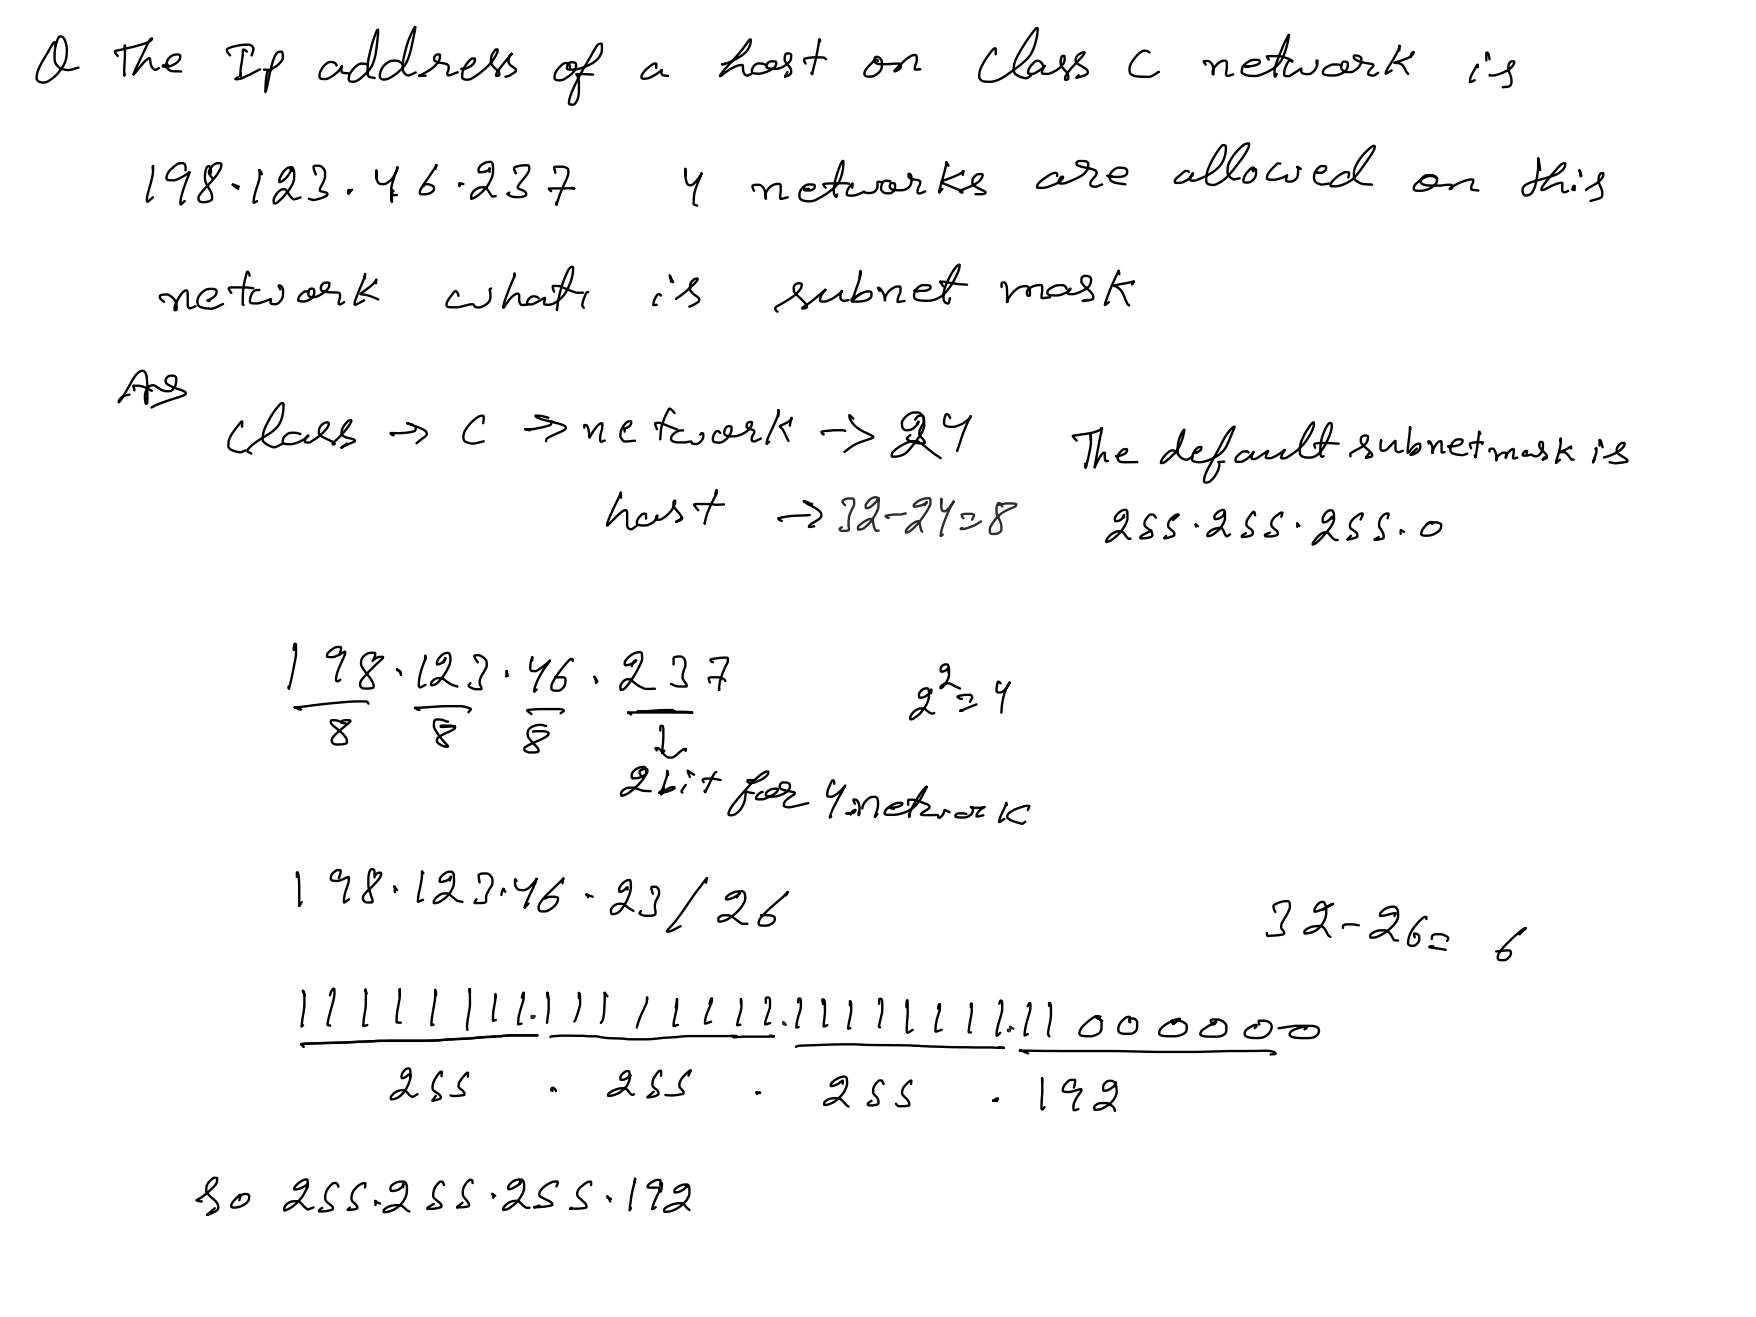 Q The Ip address of a host on class c network is
198.123.46.237 4 networks are allowed on this
network what is subnet mask
Ans
class → c → network → 24 The default subnetmask is
host → 32-24=8 255.255.255.0
198.123.46.237 2²=4
8 8 8 ↓
2bit for 4network
198.123.46.23/26 32-26= 6
11111111.11111111.11111111.11000000
255 . 255 . 255 . 192
So 255.255.255.192